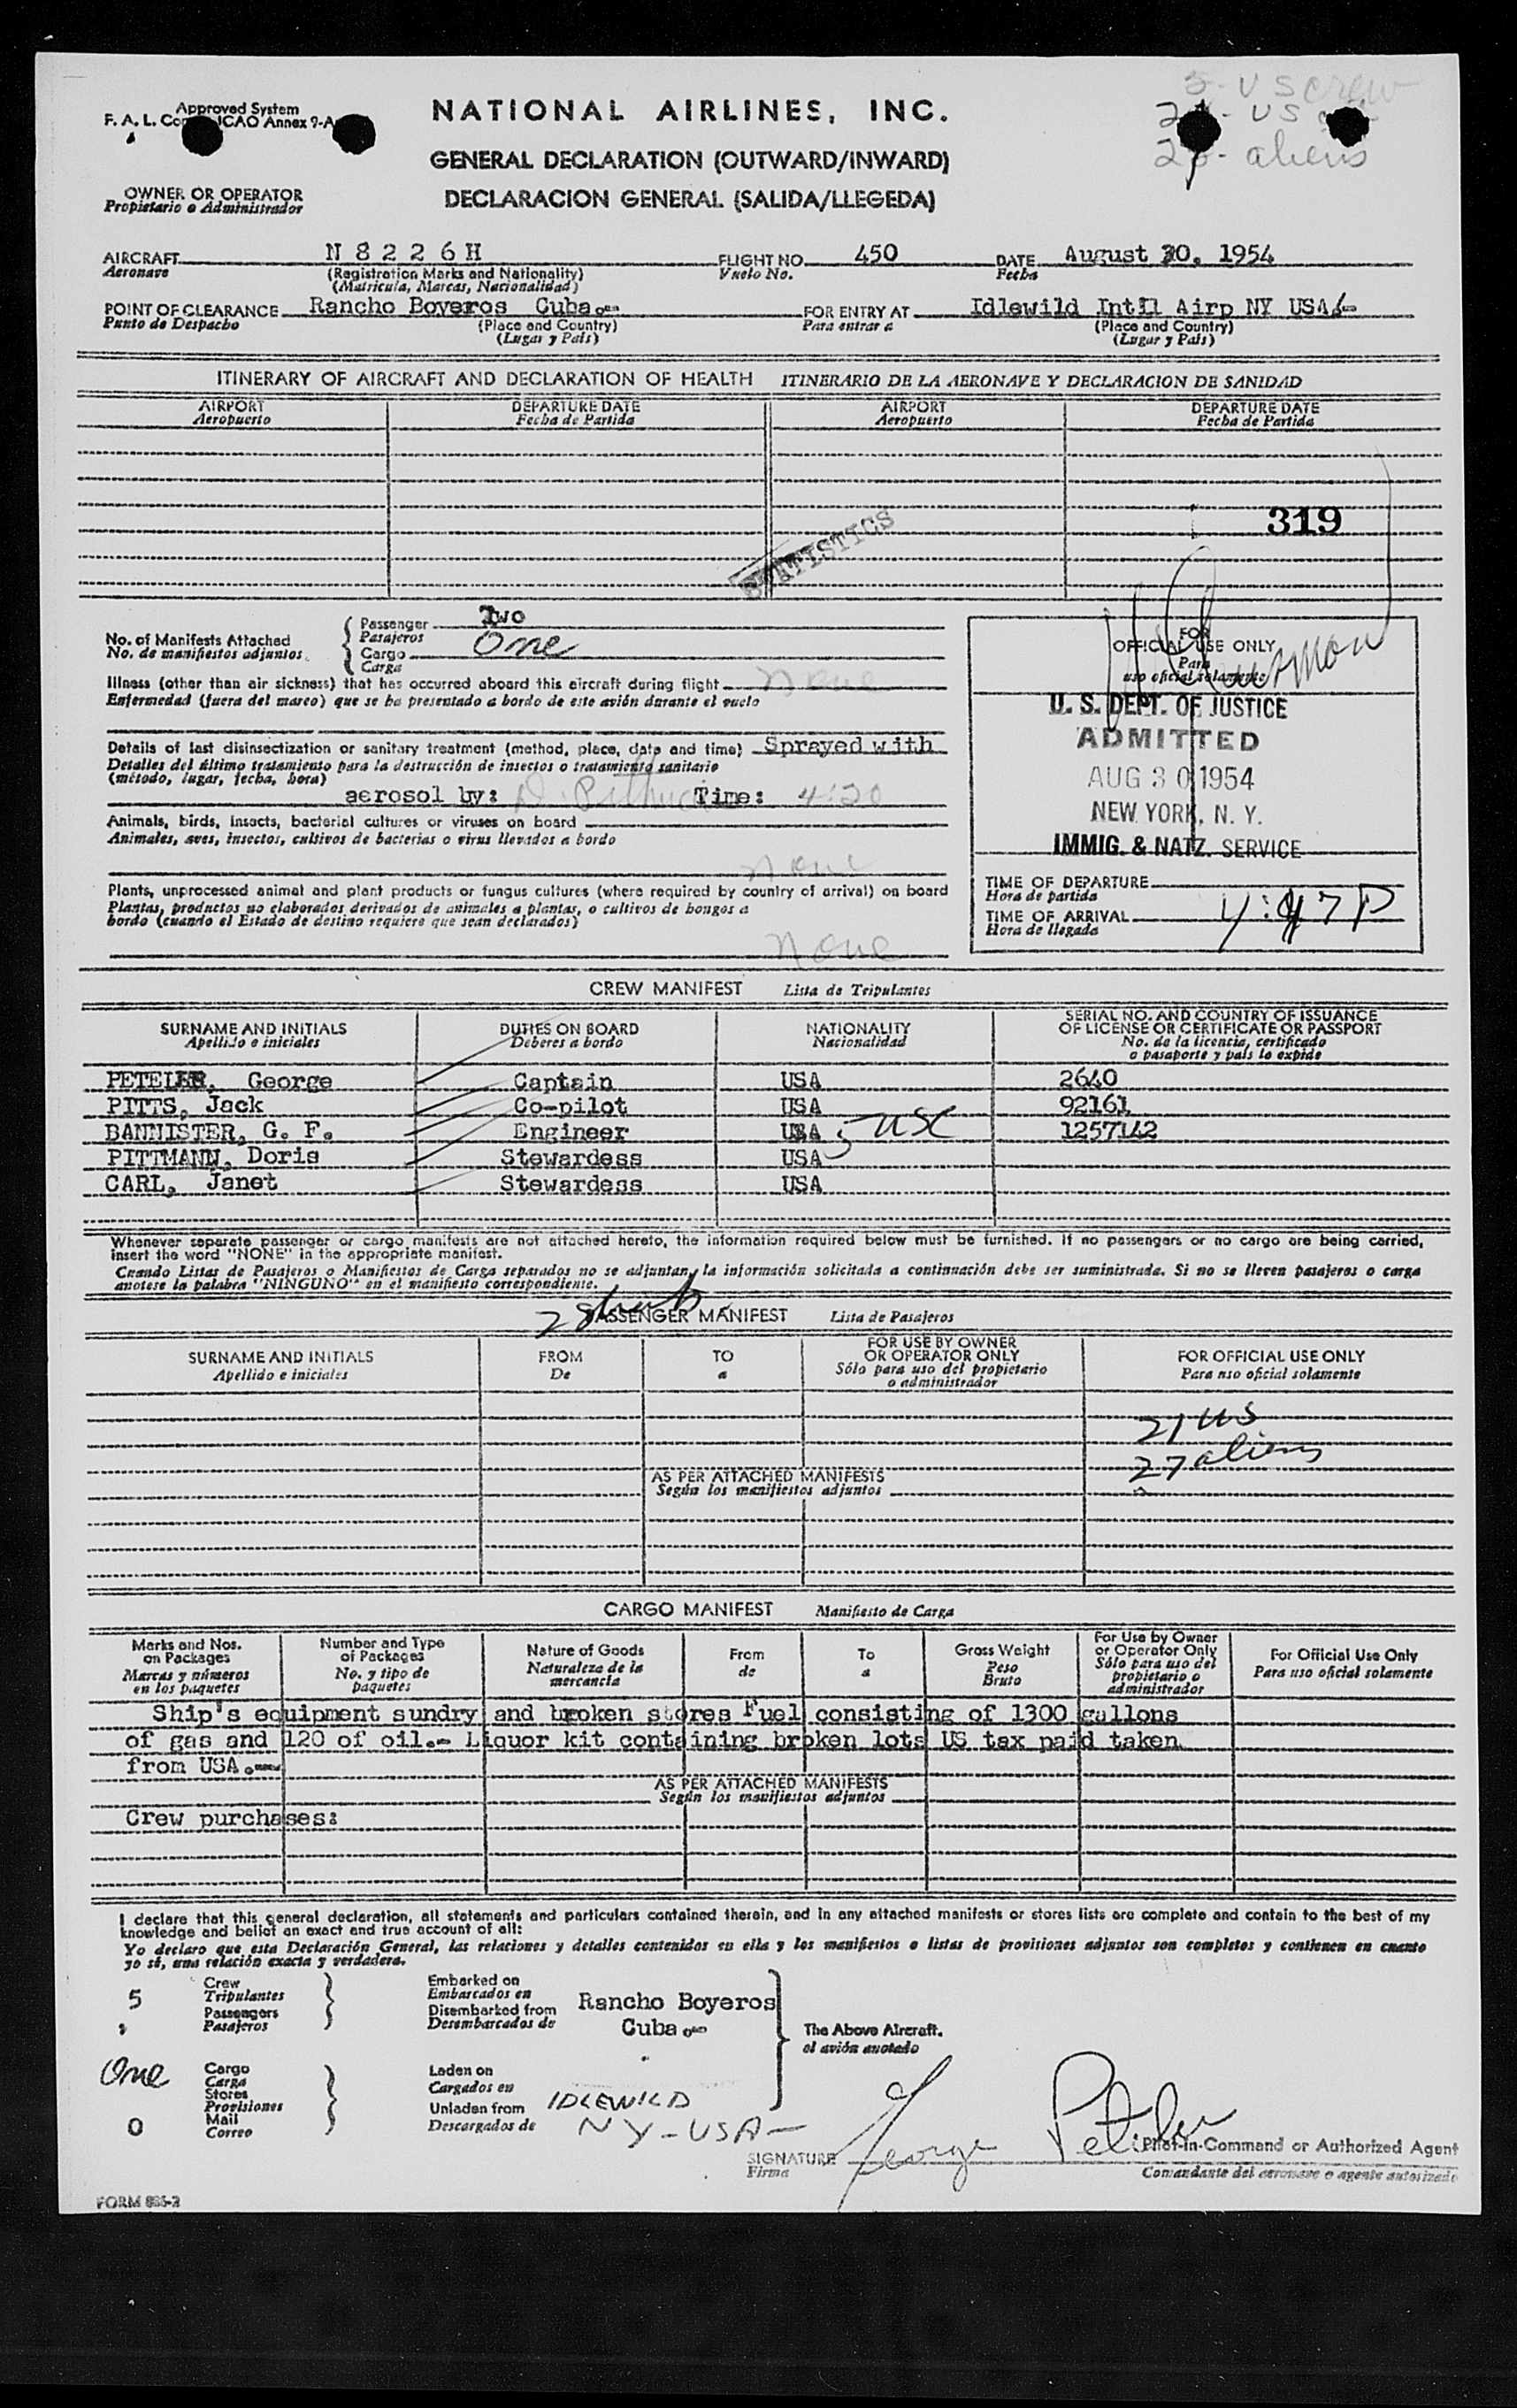 Approved System
F. A. L. ICAO Annex 9-A
NATIONAL AIRLINES, INC.
5- US crew
US
aliens
GENERAL DECLARATION (OUTWARD/INWARD)
DECLARACION GENERAL (SALIDA/LLEGEDA)
OWNER OR OPERATOR
Propietario o Administrador
AIRCRAFT N 8 2 2 6 H FLIGHT NO. 450 DATE August 30, 1954
Aeronave (Registration Marks and Nationality) Vuelo No. Fecha
(Matricula, Marcas, Nacionalidad)
POINT OF CLEARANCE Rancho Boyeros Cuba.-- FOR ENTRY AT Idlewild Int'l Airp NY USA
Punto de Despacho (Place and Country) Para entrar a (Place and Country)
(Lugar y País) (Lugar y País)
ITINERARY OF AIRCRAFT AND DECLARATION OF HEALTH ITINERARIO DE LA AERONAVE Y DECLARACION DE SANIDAD
AIRPORT DEPARTURE DATE AIRPORT DEPARTURE DATE
Aeropuerto Fecha de Partida Aeropuerto Fecha de Partida
319
STATISTICS
No. of Manifests Attached
No. de manifiestos adjuntos
Passenger Two
Pasajeros
Cargo One
Carga
Illness (other than air sickness) that has occurred aboard this aircraft during flight None
Enfermedad (fuera del mareo) que se ha presentado a bordo de este avión durante el vuelo
Details of last disinsectization or sanitary treatment (method, place, date and time) Sprayed with
Detalles del último tratamiento para la destrucción de insectos o tratamiento sanitario
(método, lugar, fecha, hora)
aerosol by: Time: 4:20
Animals, birds, insects, bacterial cultures or viruses on board
Animales, aves, insectos, cultivos de bacterias o virus llevados a bordo
None
Plants, unprocessed animal and plant products or fungus cultures (where required by country of arrival) on board
Plantas, productos no elaborados derivados de animales a plantas, o cultivos de hongos a
bordo (cuando el Estado de destino requiere que sean declarados)
None
FOR
OFFICIAL USE ONLY
Para
uso oficial solamente
U. S. DEPT. OF JUSTICE
ADMITTED
AUG 30 1954
NEW YORK, N. Y.
IMMIG. & NATZ. SERVICE
TIME OF DEPARTURE
Hora de partida
TIME OF ARRIVAL 4:47P
Hora de llegada
CREW MANIFEST Lista de Tripulantes
SURNAME AND INITIALS DUTIES ON BOARD NATIONALITY SERIAL NO. AND COUNTRY OF ISSUANCE
OF LICENSE OR CERTIFICATE OR PASSPORT
Apellido e iniciales Deberes a bordo Nacionalidad No. de la licencia, certificado
o pasaporte y país lo expide
PETELER, George Captain USA 2640
PITTS, Jack Co-pilot USA 92161
BANNISTER, G. F. Engineer USA 5 USC 1257142
PITTMANN, Doris Stewardess USA
CARL, Janet Stewardess USA
Whenever separate passenger or cargo manifests are not attached hereto, the information required below must be furnished. If no passengers or no cargo are being carried,
insert the word "NONE" in the appropriate manifest.
Cuando Listas de Pasajeros o Manifiestos de Carga separados no se adjuntan, la información solicitada a continuación debe ser suministrada. Si no se lleven pasajeros o carga
anotese la palabra "NINGUNO" en el manifiesto correspondiente.
PASSENGER MANIFEST Lista de Pasajeros
SURNAME AND INITIALS FROM TO FOR USE BY OWNER
OR OPERATOR ONLY FOR OFFICIAL USE ONLY
Apellido e iniciales De a Sólo para uso del propietario
o administrador Para uso oficial solamente
21 US
27 aliens
AS PER ATTACHED MANIFESTS
Según los manifiestos adjuntos
CARGO MANIFEST Manifiesto de Carga
Marks and Nos.
on Packages
Marcas y números
en los paquetes
Number and Type
of Packages
No. y tipo de
paquetes
Nature of Goods
Naturaleza de la
mercancía
From
de
To
a
Gross Weight
Peso
Bruto
For Use by Owner
or Operator Only
Sólo para uso del
propietario o
administrador
For Official Use Only
Para uso oficial solamente
Ship's equipment sundry and broken stores Fuel consisting of 1300 gallons
of gas and 120 of oil.- Liquor kit containing broken lots US tax paid taken
from USA.--
AS PER ATTACHED MANIFESTS
Según los manifiestos adjuntos
Crew purchases:
I declare that this general declaration, all statements and particulars contained therein, and in any attached manifests or stores lists are complete and contain to the best of my
knowledge and belief an exact and true account of all:
Yo declaro que esta Declaración General, las relaciones y detalles contenidos en ella y los manifiestos o listas de provisiones adjuntos son completos y contienen en cuanto
yo sé, una relación exacta y verdadera.
5 Crew
Tripulantes
Passengers
Pasajeros
Embarked on
Embarcados en
Disembarked from
Desembarcados de
Rancho Boyeros
Cuba.--
The Above Aircraft.
el avión anotado
One Cargo
Carga
Stores
Provisiones
0 Mail
Correo
Laden on
Cargados en
Unladen from
Descargados de
IDLEWILD
NY-USA-
SIGNATURE George Peteler
Firma
Pilot-in-Command or Authorized Agent
Comandante del aeronave o agente autorizado
FORM 886-2